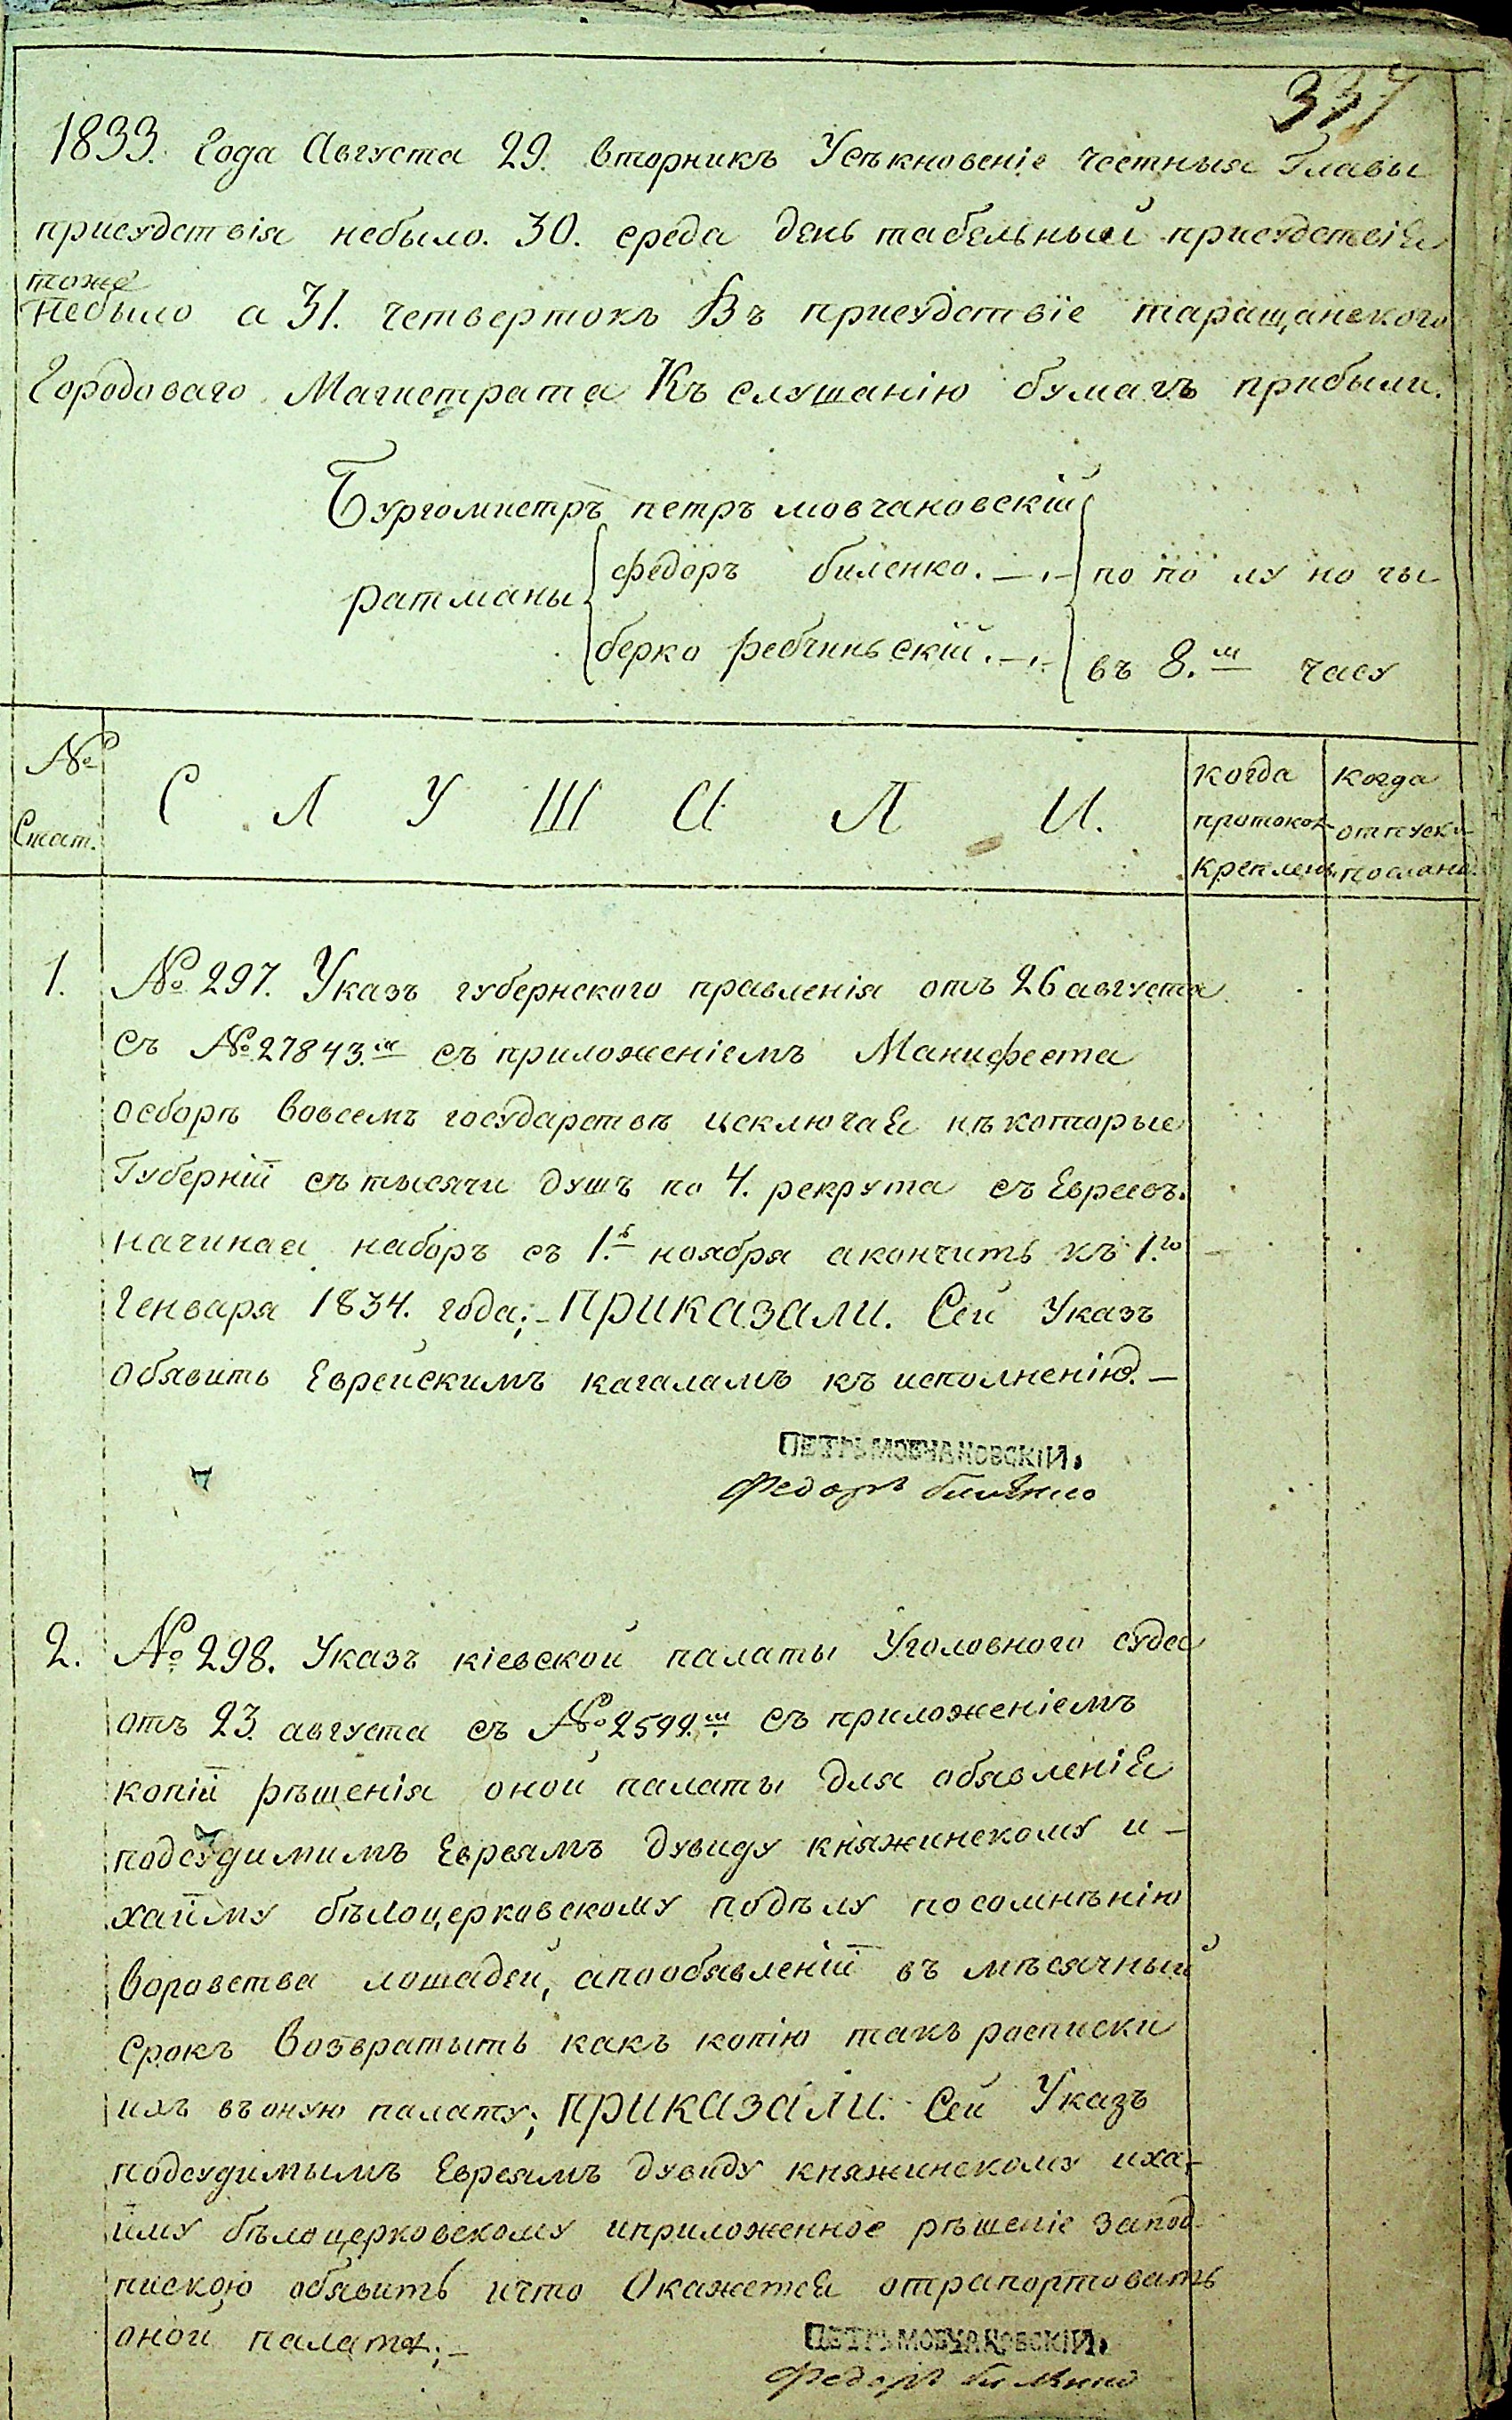 337
1833. Года Августа 29. вторникъ Усѣкновеніе честныя Главы
присудствія небыло. 30. среда день табельный присудствія
тоже
небыло а 31. четвертокъ Въ присудствіе таращанского
Городоваго Магистрата Къ слушанію бумагъ прибыли.
Бургомистръ петръ мовчановскій
ратманы
федоръ биленко.
берко ребчиньскій.
по по лу но чы
въ 8.м часу
№ Стат.
С Л У Ш А Л И.
когда протокол креплен.
когда отпуски послани.
1. № 297. Указъ губернского правленія отъ 26 августа
съ № 27843.м съ приложеніемъ Манифеста
осборѣ вовсемъ государствѣ исключая нѣкоторые
Губерніи съ тысячи душъ по 4. рекрута съ Евреевъ.
начиная наборъ съ 1. ноября акончить къ 1.го
Генваря 1834. года;– приказали. Сей Указъ
обявить Еврейскимъ кагаламъ къ исполненію.–
ПЕТРЪ МОВЧАНОВСКІЙ.
Федоръ биленко
2. № 298. Указъ кіевской палаты Уголовного суда
отъ 23 августа съ № 2599.м съ приложеніемъ
копіи рѣшенія оной палаты для обявленія
подсудимимъ Евреямъ дувиду княжинскому и –
хаиму бѣлоцерковскому подѣлу посомнѣнію
воровства лошадей, апообявленіи въ мѣсячный
срокъ возвратыть какъ копію такъ росписки
ихъ въ оную палату; приказали. Сей Указъ
подсудимымъ Евреямъ дувиду княжинскому иха-
иму бѣлоцерковскому иприложенное рѣшеніе запод
пискою обявить ичто Окажется отрапортовать
оной палатѣ;–
ПЕТРЪ МОВЧАНОВСКІЙ.
Федоръ биленко